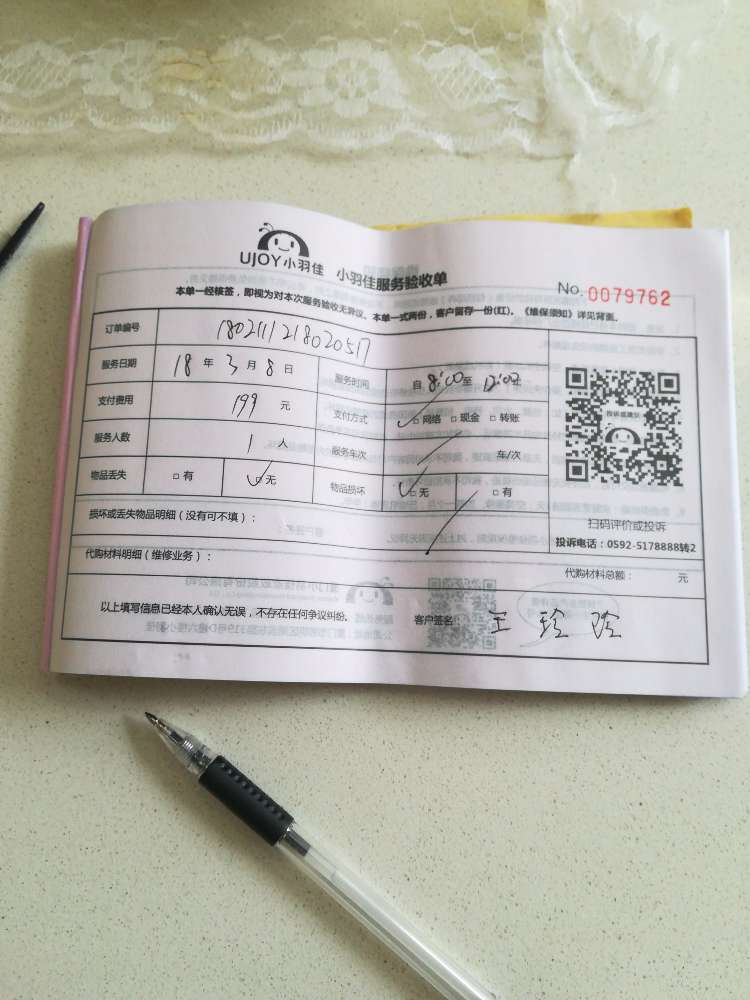 UJOY小羽佳 小羽佳服务验收单
No. 0079762
本单一经核签，即视为对本次服务验收无异议。本单一式两份，客户留存一份(红)。《维保须知》详见背面。
订单编号 1802111218020517
服务日期 18 年 3 月 8 日 服务时间 自 8:00 至 12:00
支付费用 199 元 支付方式 □网络 □现金 □转账
投诉或建议
服务人数 1 人 服务车次 车/次
物品丢失 □有 □无 物品损坏 □无 □有
损坏或丢失物品明细（没有可不填）：
扫码评价或投诉
投诉电话：0592-5178888转2
代购材料明细（维修业务）： 代购材料总额： 元
以上填写信息已经本人确认无误，不存在任何争议纠纷。 客户签名： 王珍玲